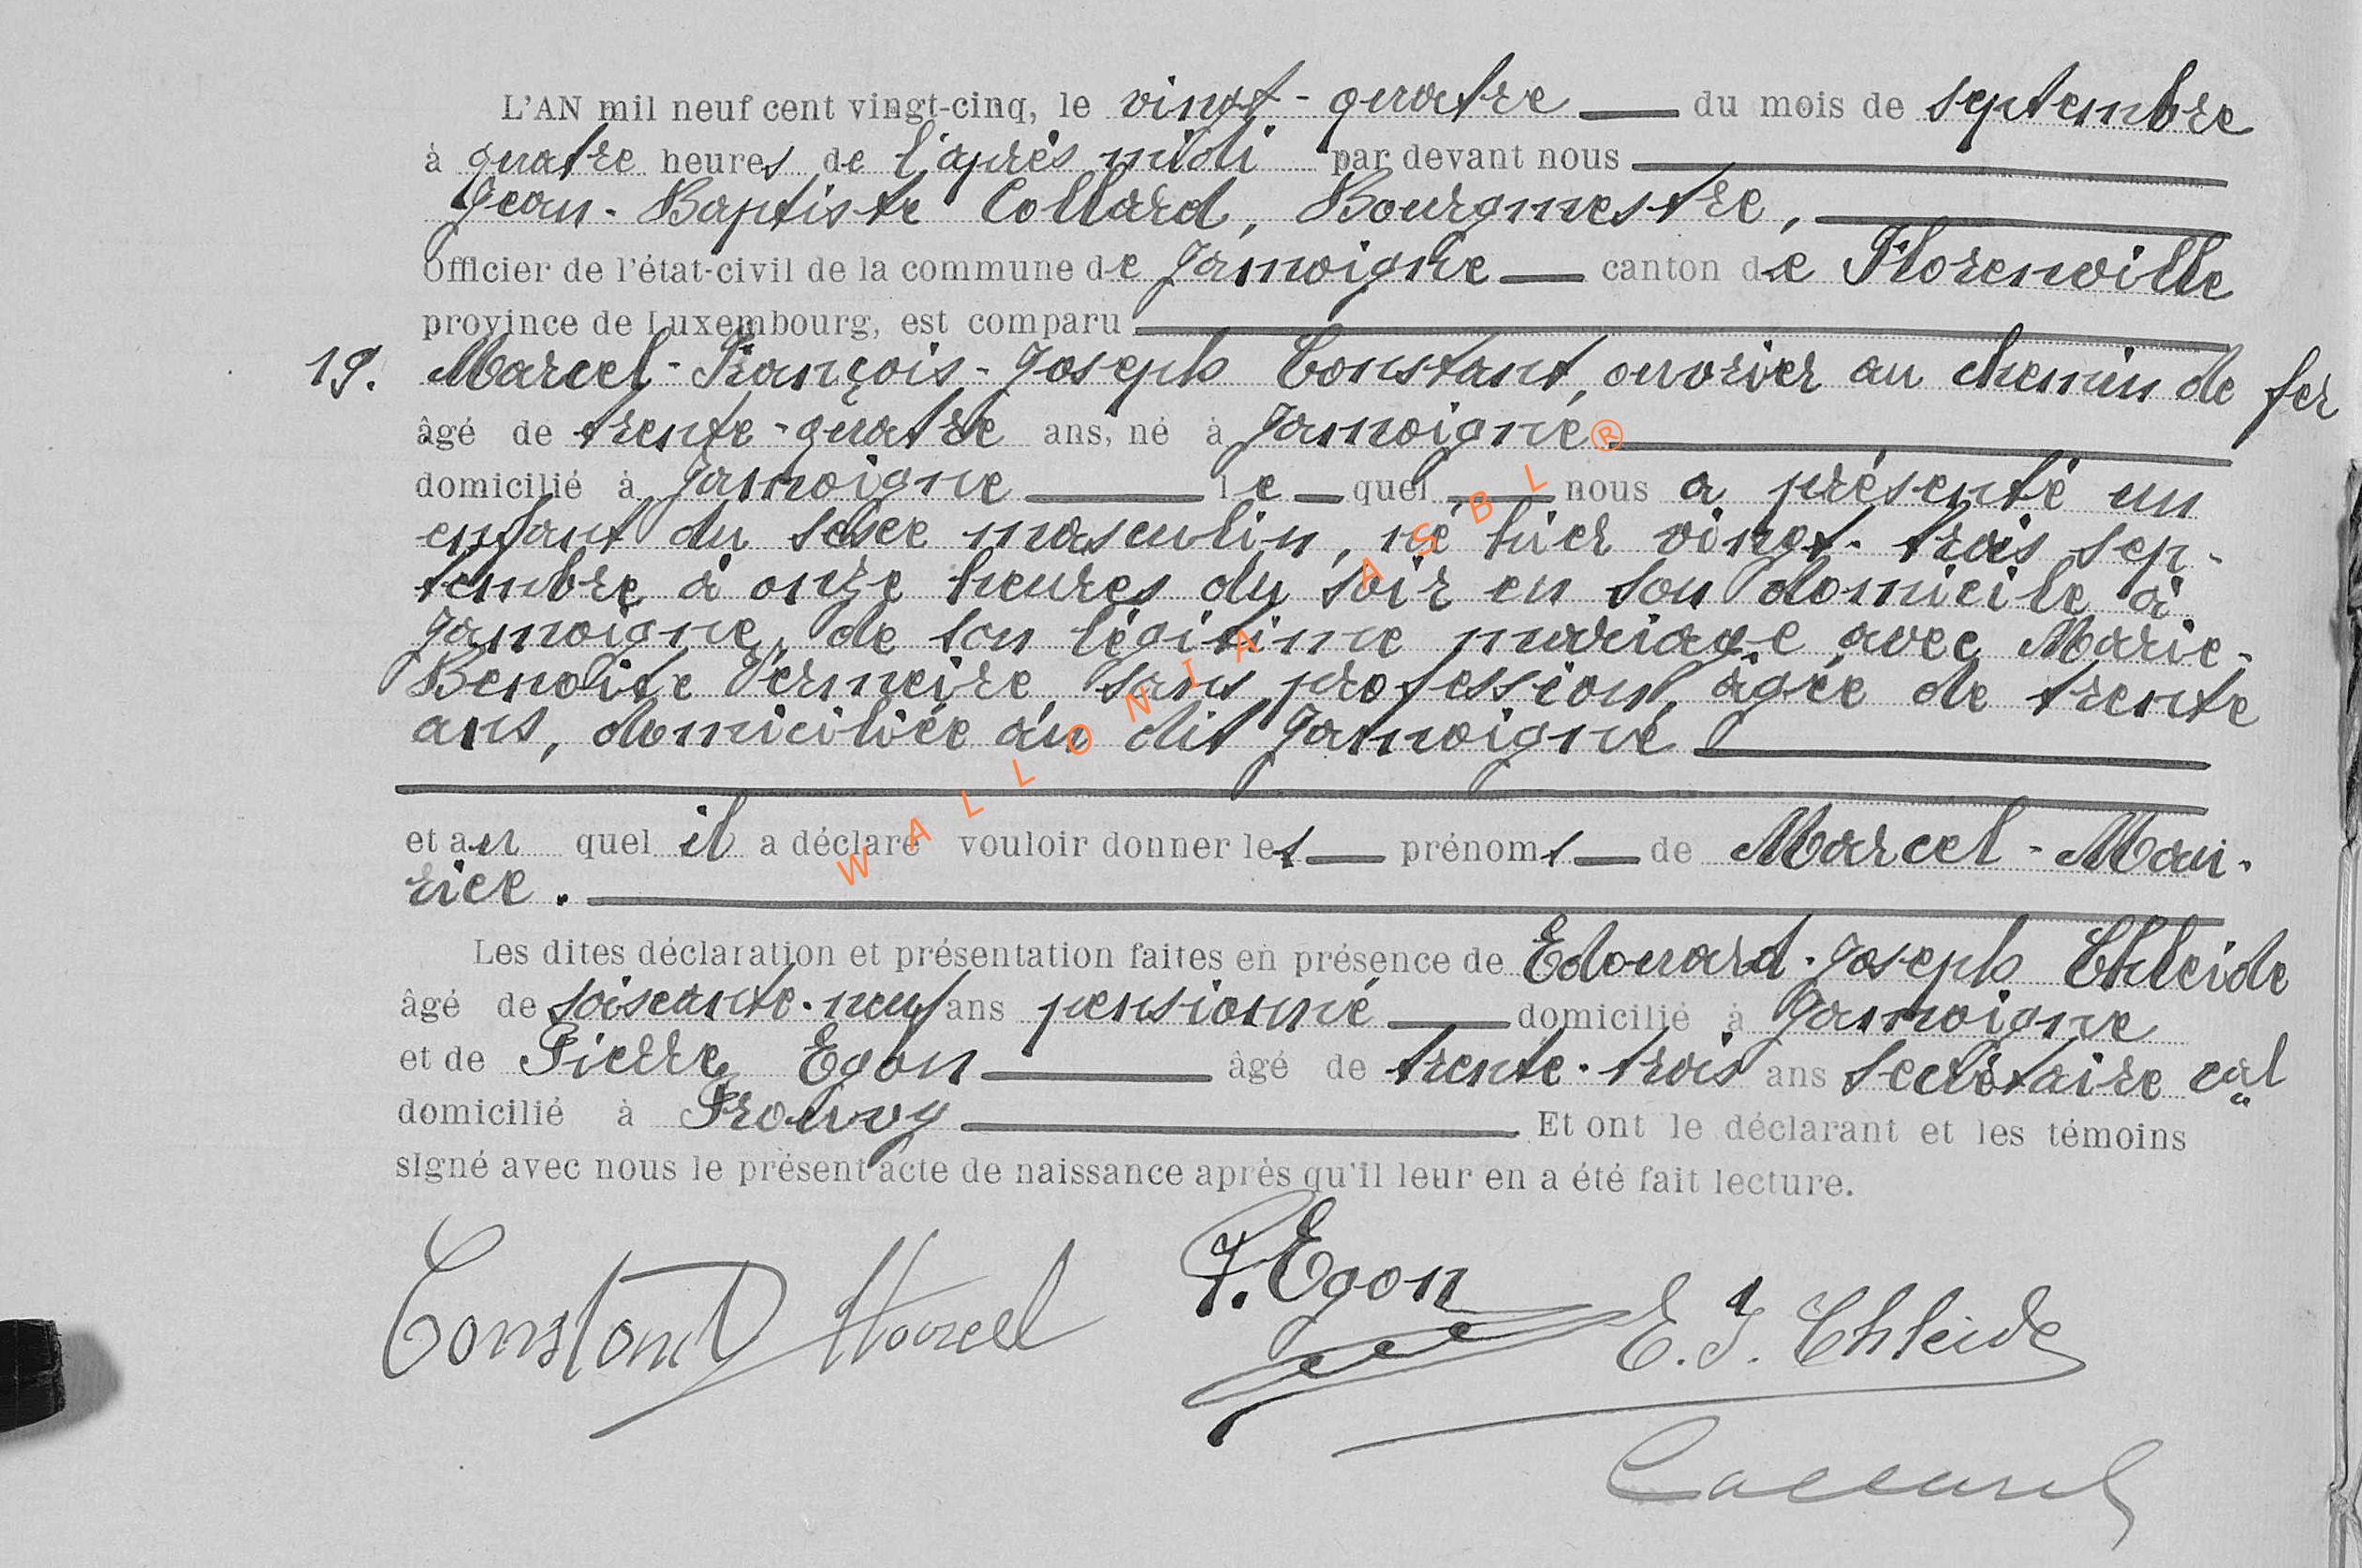 L'AN mil neuf cent vingt-cinq, le vingt-quatre — du mois de septembre
à quatre heures de l'après midi par devant nous
Jean-Baptiste Collard, Bourgmestre,
Officier de l'état-civil de la commune de Jamoigne — canton de Florenville
province de Luxembourg, est comparu
19. Marcel-François-Joseph Constant, ouvrier au chemin de fer
âgé de trente-quatre ans, né à Jamoigne ®
domicilié à Jamoigne — le — quel — nous a présenté un
enfant du sexe masculin, né hier vingt-trois sep-
tembre à onze heures du soir en son domicile à
Jamoigne, de son légitime mariage avec Marie-
Benoîte Vermeire, sans profession, âgée de trente
ans, domiciliée au dit Jamoigne
WALLONIA ASBL
et au quel il a déclaré vouloir donner les — prénoms — de Marcel-Mau-
rice.
Les dites déclaration et présentation faites en présence de Edouard-Joseph Chleide
âgé de soixante-neuf ans pensionné — domicilié à Jamoigne
et de Pierre Egon — âgé de trente-trois ans secrétaire cal
domicilié à Prouvy — Et ont le déclarant et les témoins
signé avec nous le présent acte de naissance après qu'il leur en a été fait lecture.
Constant Marcel
P. Egon
E. J. Chleide
Collard